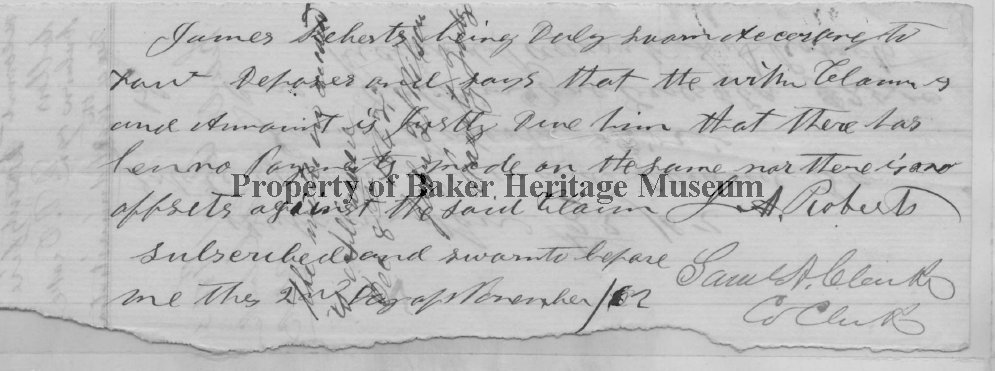 James Roberts being Duly sworn According to
Law Deposes and says that the within Claim is
and Amount is Justly Due him that there has
ben no Payments made on the same nor there is no
offsets against the said Claim J. A. Roberts
subscribed and sworn to before
me this 2nd Day of November /62
Saml A. Clarke
Co Clerk
Property of Baker Heritage Museum